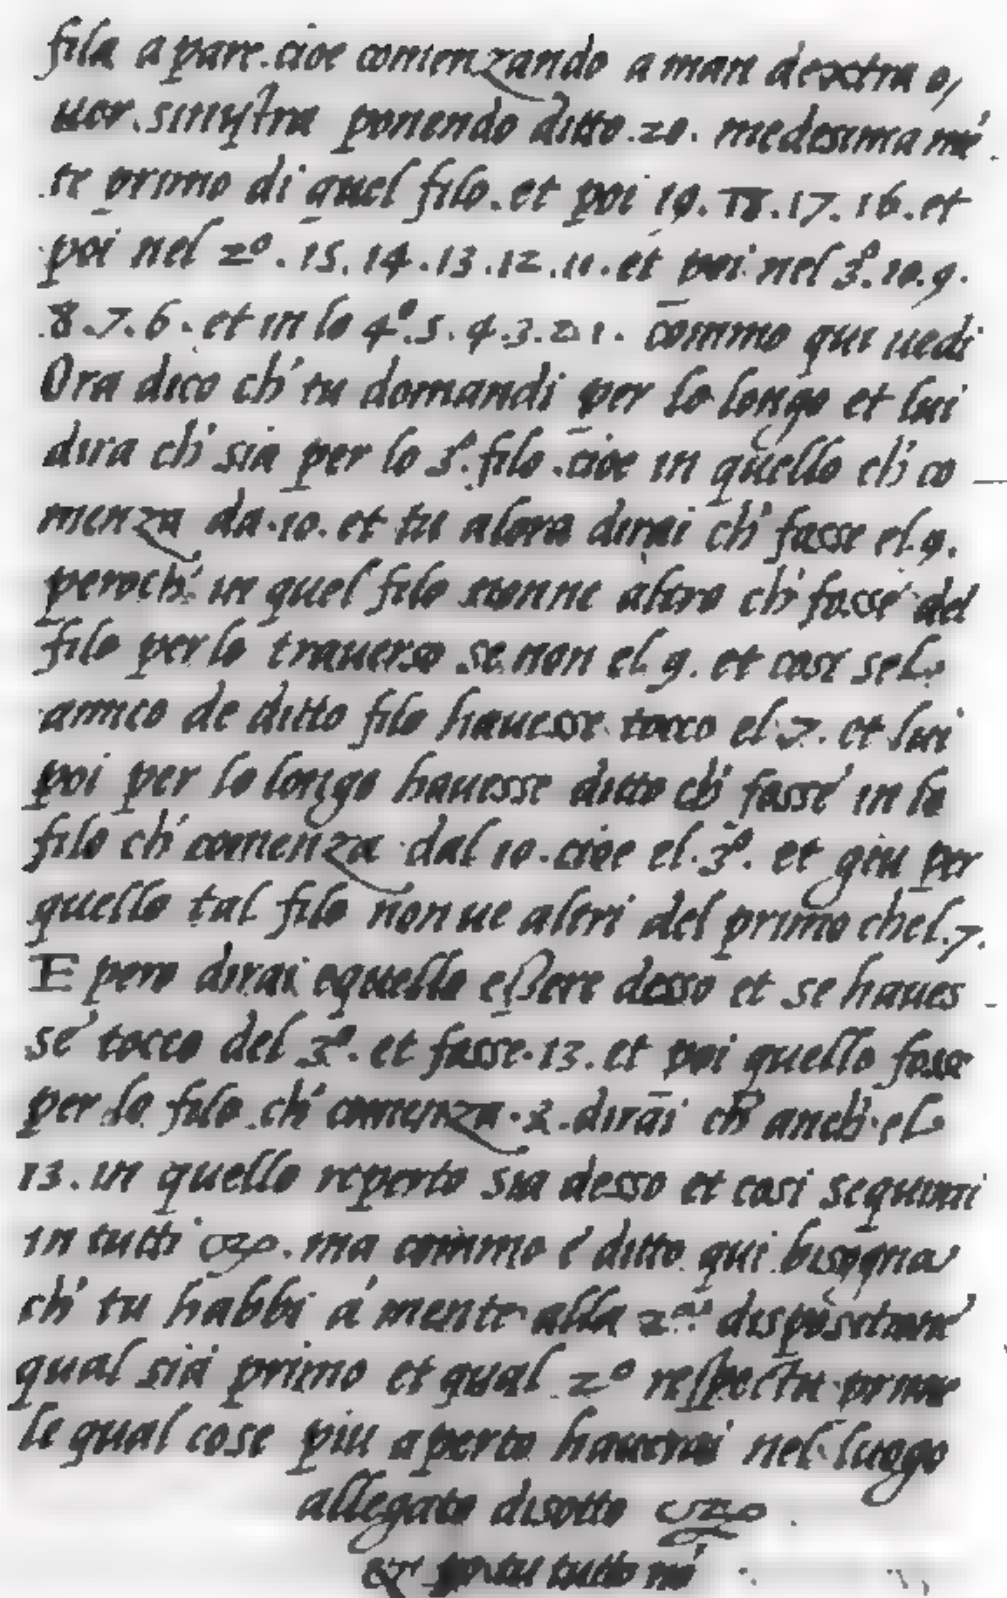 fila a pare. cioe comenzando a man dextra o,
uer. sinistra ponendo ditto .20. medesima mē
te primo di quel filo. et poi 19. 18. 17. 16. et
poi nel 2º. 15. 14. 13. 12. 11. et poi nel 3º. 10. 9.
8. 7. 6. et in lo 4º. 5. 4. 3. 2. 1. commo qui uedi
Ora dico ch' tu domandi per lo longo et lui
dira ch' sia per lo 3º. filo. cioe in quello ch' co
menza da .10. et tu alora dirai ch' fosse el 9.
peroch' in quel filo nonne altro ch' fosse del
filo per lo trauerso se non el 9. et cosi sel
amico de ditto filo hauesse tocco el 7. et lui
poi per lo longo hauesse ditto ch' fosse in lo
filo ch' comenza dal 10. cioe el .3º. et giu per
quello tal filo non ue altri del primo chel .7.
E pero dirai equello essere desso et se haues
se tocco del 3º. et fosse .13. et poi quello fosse
per lo filo ch' comenza .3. dirai ch' anch' el
13. in quello reperto sia desso et cosi sequirai
in tutti. ma commo e' ditto qui bisogna
ch' tu habbi á mente alla 2ª dispositione
qual sia primo et qual 2º respectu prime
le qual cose piu aperto hauerai nel luogo
allegato disotto
& tu tutto